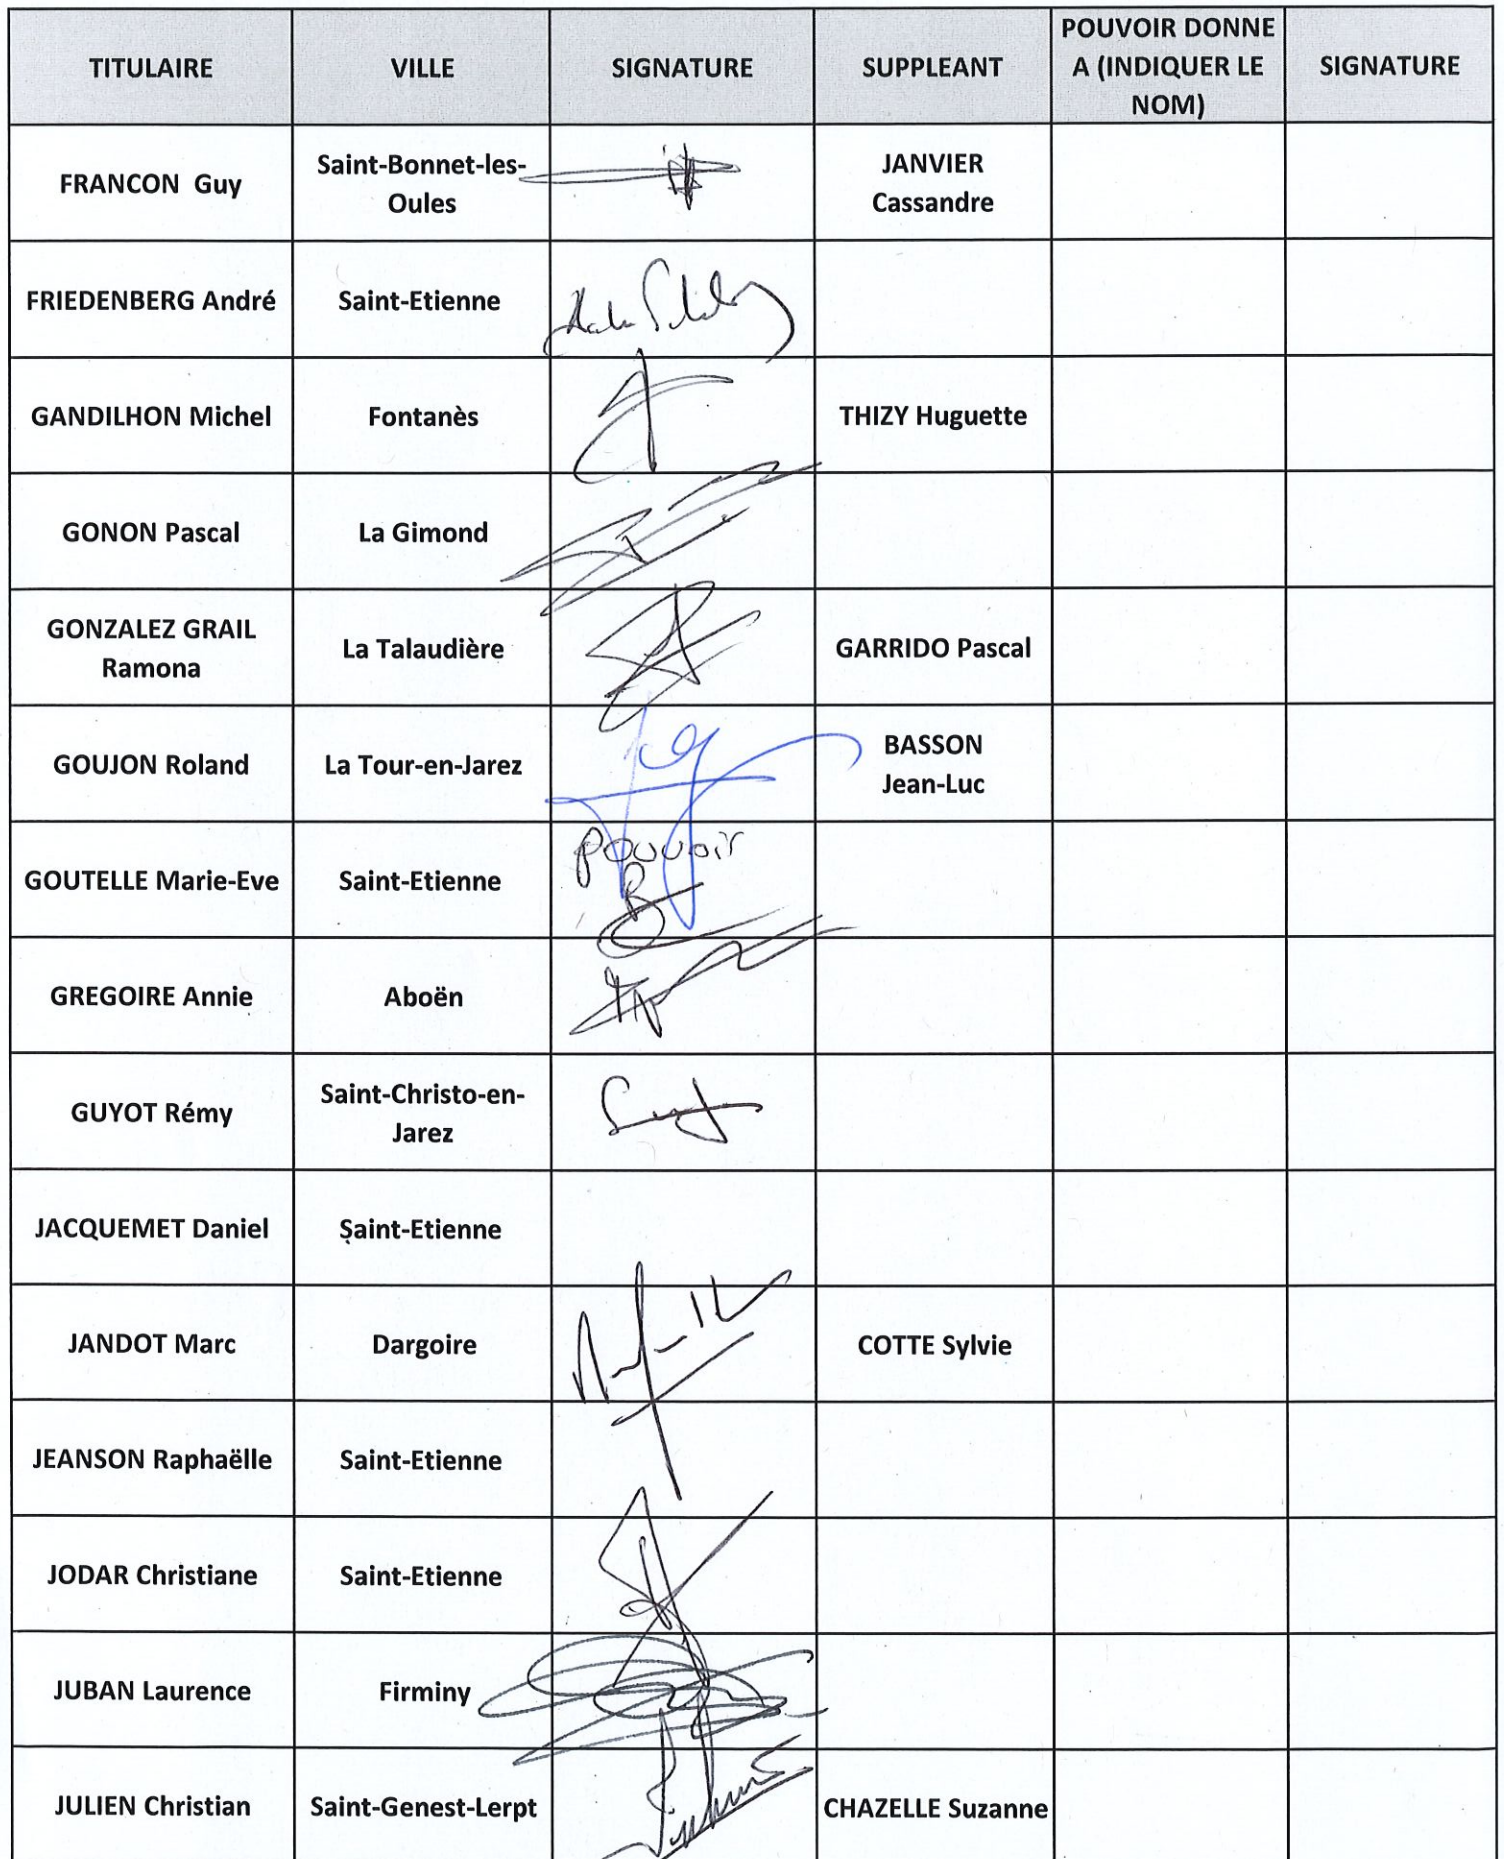 TITULAIRE VILLE SIGNATURE SUPPLEANT POUVOIR DONNE
A (INDIQUER LE
NOM) SIGNATURE
FRANCON Guy Saint-Bonnet-les-
Oules JANVIER
Cassandre
FRIEDENBERG André Saint-Etienne
GANDILHON Michel Fontanès THIZY Huguette
GONON Pascal La Gimond
GONZALEZ GRAIL
Ramona La Talaudière GARRIDO Pascal
GOUJON Roland La Tour-en-Jarez BASSON
Jean-Luc
GOUTELLE Marie-Eve Saint-Etienne pouvoir
GREGOIRE Annie Aboën
GUYOT Rémy Saint-Christo-en-
Jarez
JACQUEMET Daniel Saint-Etienne
JANDOT Marc Dargoire COTTE Sylvie
JEANSON Raphaëlle Saint-Etienne
JODAR Christiane Saint-Etienne
JUBAN Laurence Firminy
JULIEN Christian Saint-Genest-Lerpt CHAZELLE Suzanne